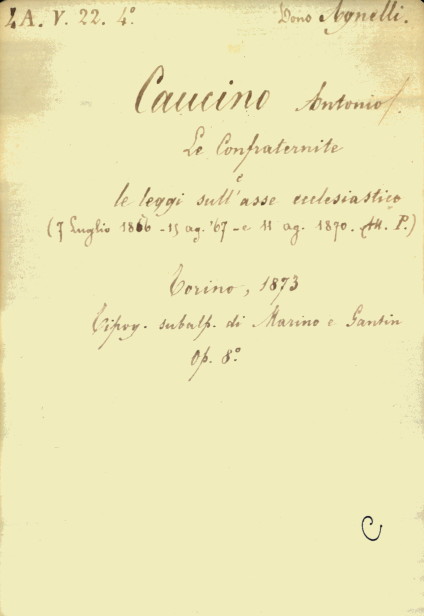 ZA. V. 22. 4.° Dono Agnelli.
Caucino Antonio.
Le Confraternite
e
le leggi sull'asse ecclesiastico
(7 Luglio 1866 - 15 ag. '67 - e 11 ag. 1870. All. P.)
Torino, 1873
Tipog. subalp. di Marino e Gantin
Op. 8.°
C